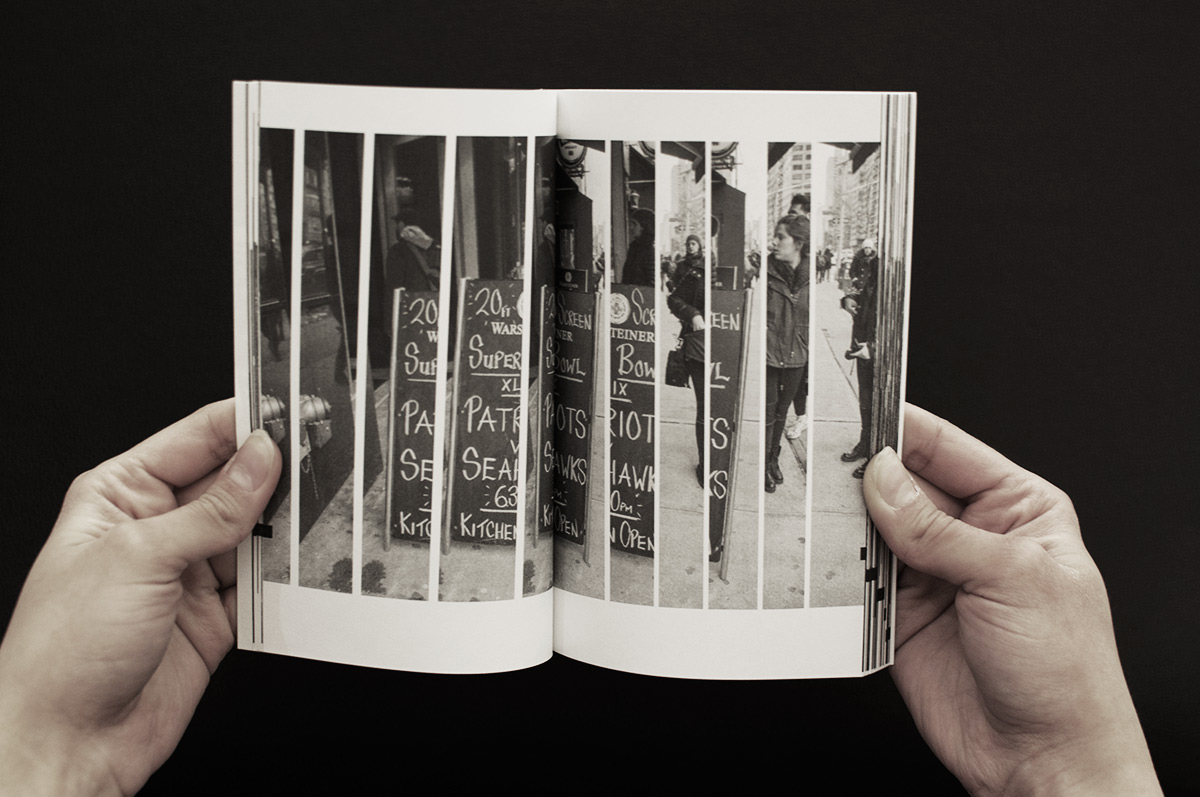 20
W
SUP
PA
SE
KITC
20FT
WARS
SUPER
XL
PATR
V
SEAH
63
KITCHEN
SCREEN
NER
OWL
OTS
AWKS
OPEN
SCR
TEINER
BOW
IX
RIOT
HAWK
0PM
N OPEN
EEN
L
S
KS